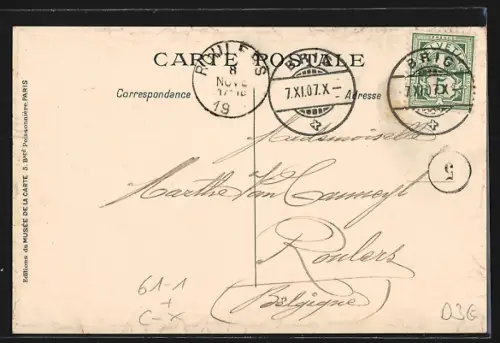 CARTE POSTALE
Correspondance
Adresse
ROULERS
8
NOVE
19
BRIG
7.XI.07.X
BRIG
7.XI.07.X
HELVETIA
5
5
Mademoiselle
Marthe Van
Roulers
(Belgique)
61-1
+
C-X
D3G
Editions du MUSÉE DE LA CARTE 3. Bard Poissonnière, PARIS